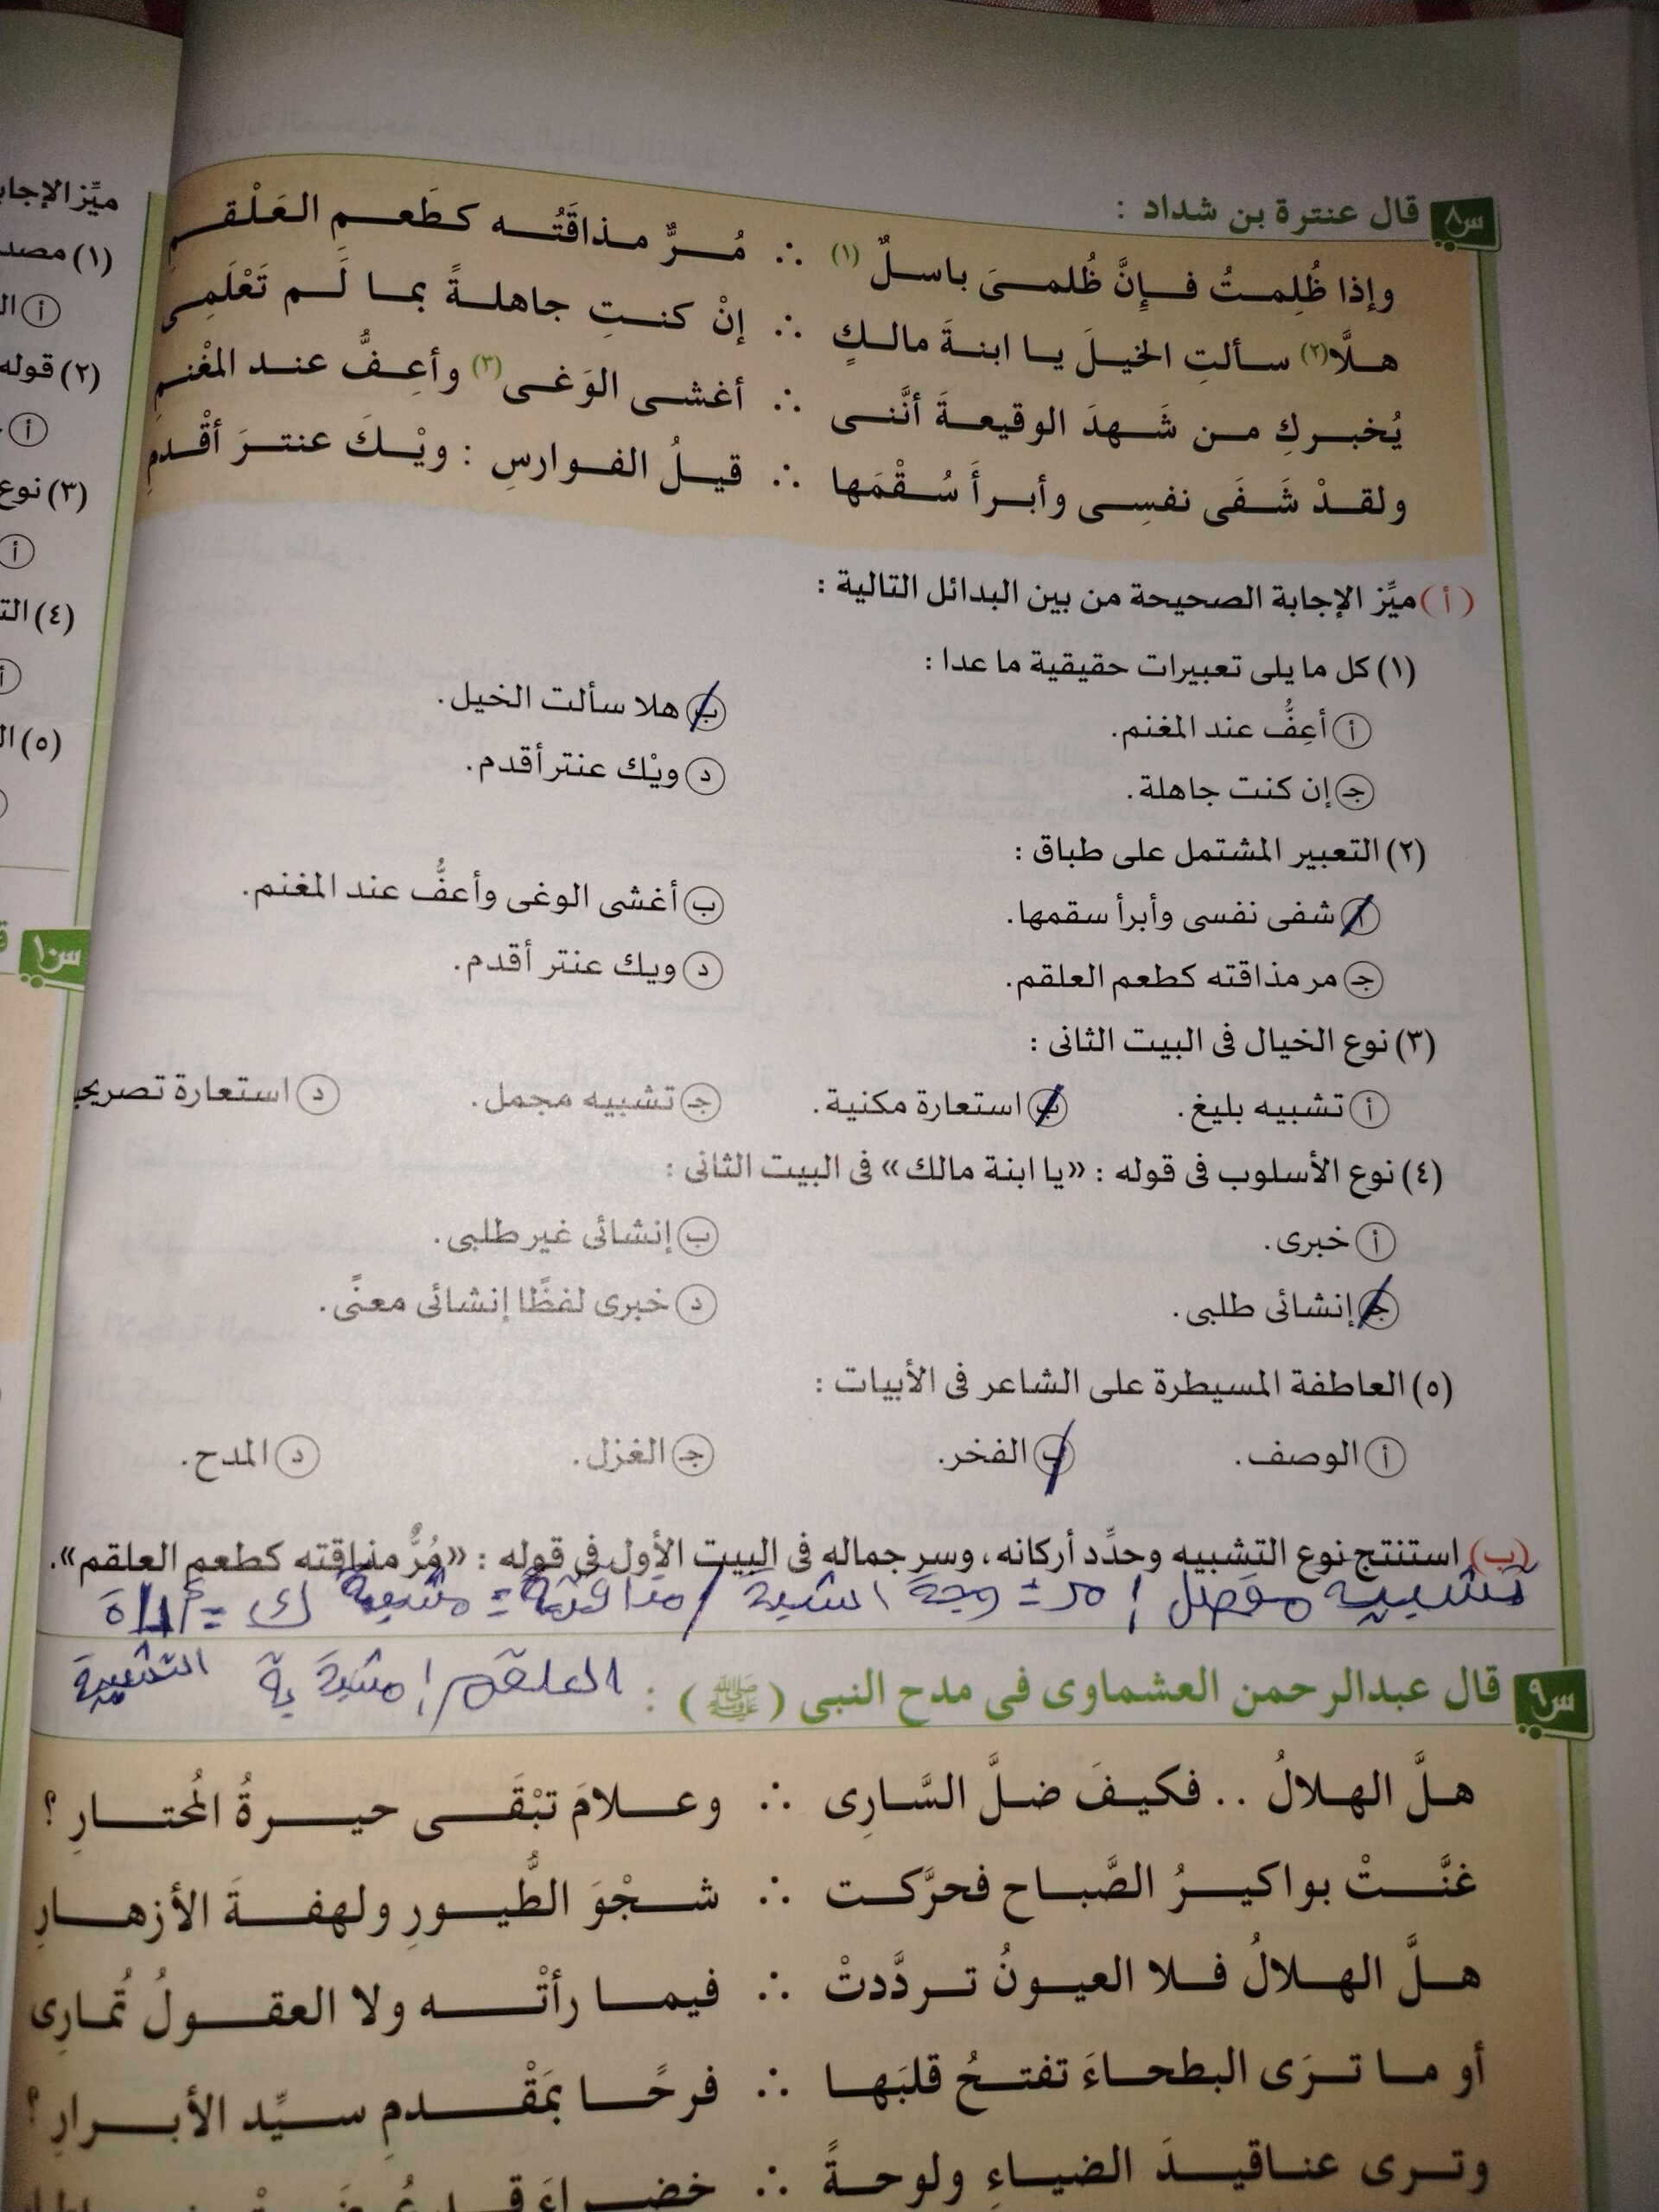 س٨ قال عنترة بن شداد :
وإذا ظُلِمتُ فإنَّ ظُلمىَ باسلٌ (١) ∴ مُرٌّ مذاقَتُه كطَعم العَلْقمِ
هلَّا(٢) سألتِ الخيلَ يا ابنةَ مالكٍ ∴ إنْ كنتِ جاهلةً بما لَم تَعْلَمِى
يُخبركِ من شَهدَ الوقيعةَ أنَّنى ∴ أغشى الوَغى(٣) وأعِفُّ عند المغْنمِ
ولقدْ شَفَى نفسِى وأبرأَ سُقْمَها ∴ قيلُ الفوارسِ : ويْكَ عنترَ أقْدمِ
(أ) ميِّز الإجابة الصحيحة من بين البدائل التالية :
(١) كل ما يلى تعبيرات حقيقية ما عدا :
أ أعِفُّ عند المغنم. ب هلا سألت الخيل.
جـ إن كنت جاهلة. د ويْك عنتر أقدم.
(٢) التعبير المشتمل على طباق :
أ شفى نفسى وأبرأ سقمها. ب أغشى الوغى وأعفُّ عند المغنم.
جـ مر مذاقته كطعم العلقم. د ويك عنتر أقدم.
(٣) نوع الخيال فى البيت الثانى :
أ تشبيه بليغ. ب استعارة مكنية. جـ تشبيه مجمل. د استعارة
(٤) نوع الأسلوب فى قوله : «يا ابنة مالك» فى البيت الثانى :
أ خبرى. ب إنشائى غير طلبى.
جـ إنشائى طلبى. د خبرى لفظًا إنشائى معنًى.
(٥) العاطفة المسيطرة على الشاعر فى الأبيات :
أ الوصف. ب الفخر. جـ الغزل. د المدح.
(ب) استنتج نوع التشبيه وحدِّد أركانه، وسر جماله فى البيت الأول فى قوله : «مُرٌّ مذاقته كطعم العلقم».
تشبيه مفصل / مر = وجة الشبة / مذاقتة = مشبهة ك = أداة
التشبية العلقم / مشبة بة
س٩ قال عبدالرحمن العشماوى فى مدح النبى (ﷺ) :
هلَّ الهلالُ .. فكيفَ ضلَّ السَّارِى ∴ وعلامَ تبْقَى حيرةُ المُحتارِ ؟
غنَّتْ بواكيرُ الصَّباح فحرَّكت ∴ شجْوَ الطُّيورِ ولهفةَ الأزهارِ
هلَّ الهلالُ فلا العيونُ تردَّدتْ ∴ فيما رأتْه ولا العقولُ تُمارِى
أو ما ترَى البطحاءَ تفتحُ قلبَها ∴ فرحًا بمَقْدمِ سيِّد الأبرارِ ؟
وترى عناقيدَ الضياءِ ولوحةً ∴ خضراءَ قد
ميِّز الإجا
(١) مصد
أ
(٢) قوله
أ
(٣) نوع
أ
(٤)
أ
(٥)
س١٠